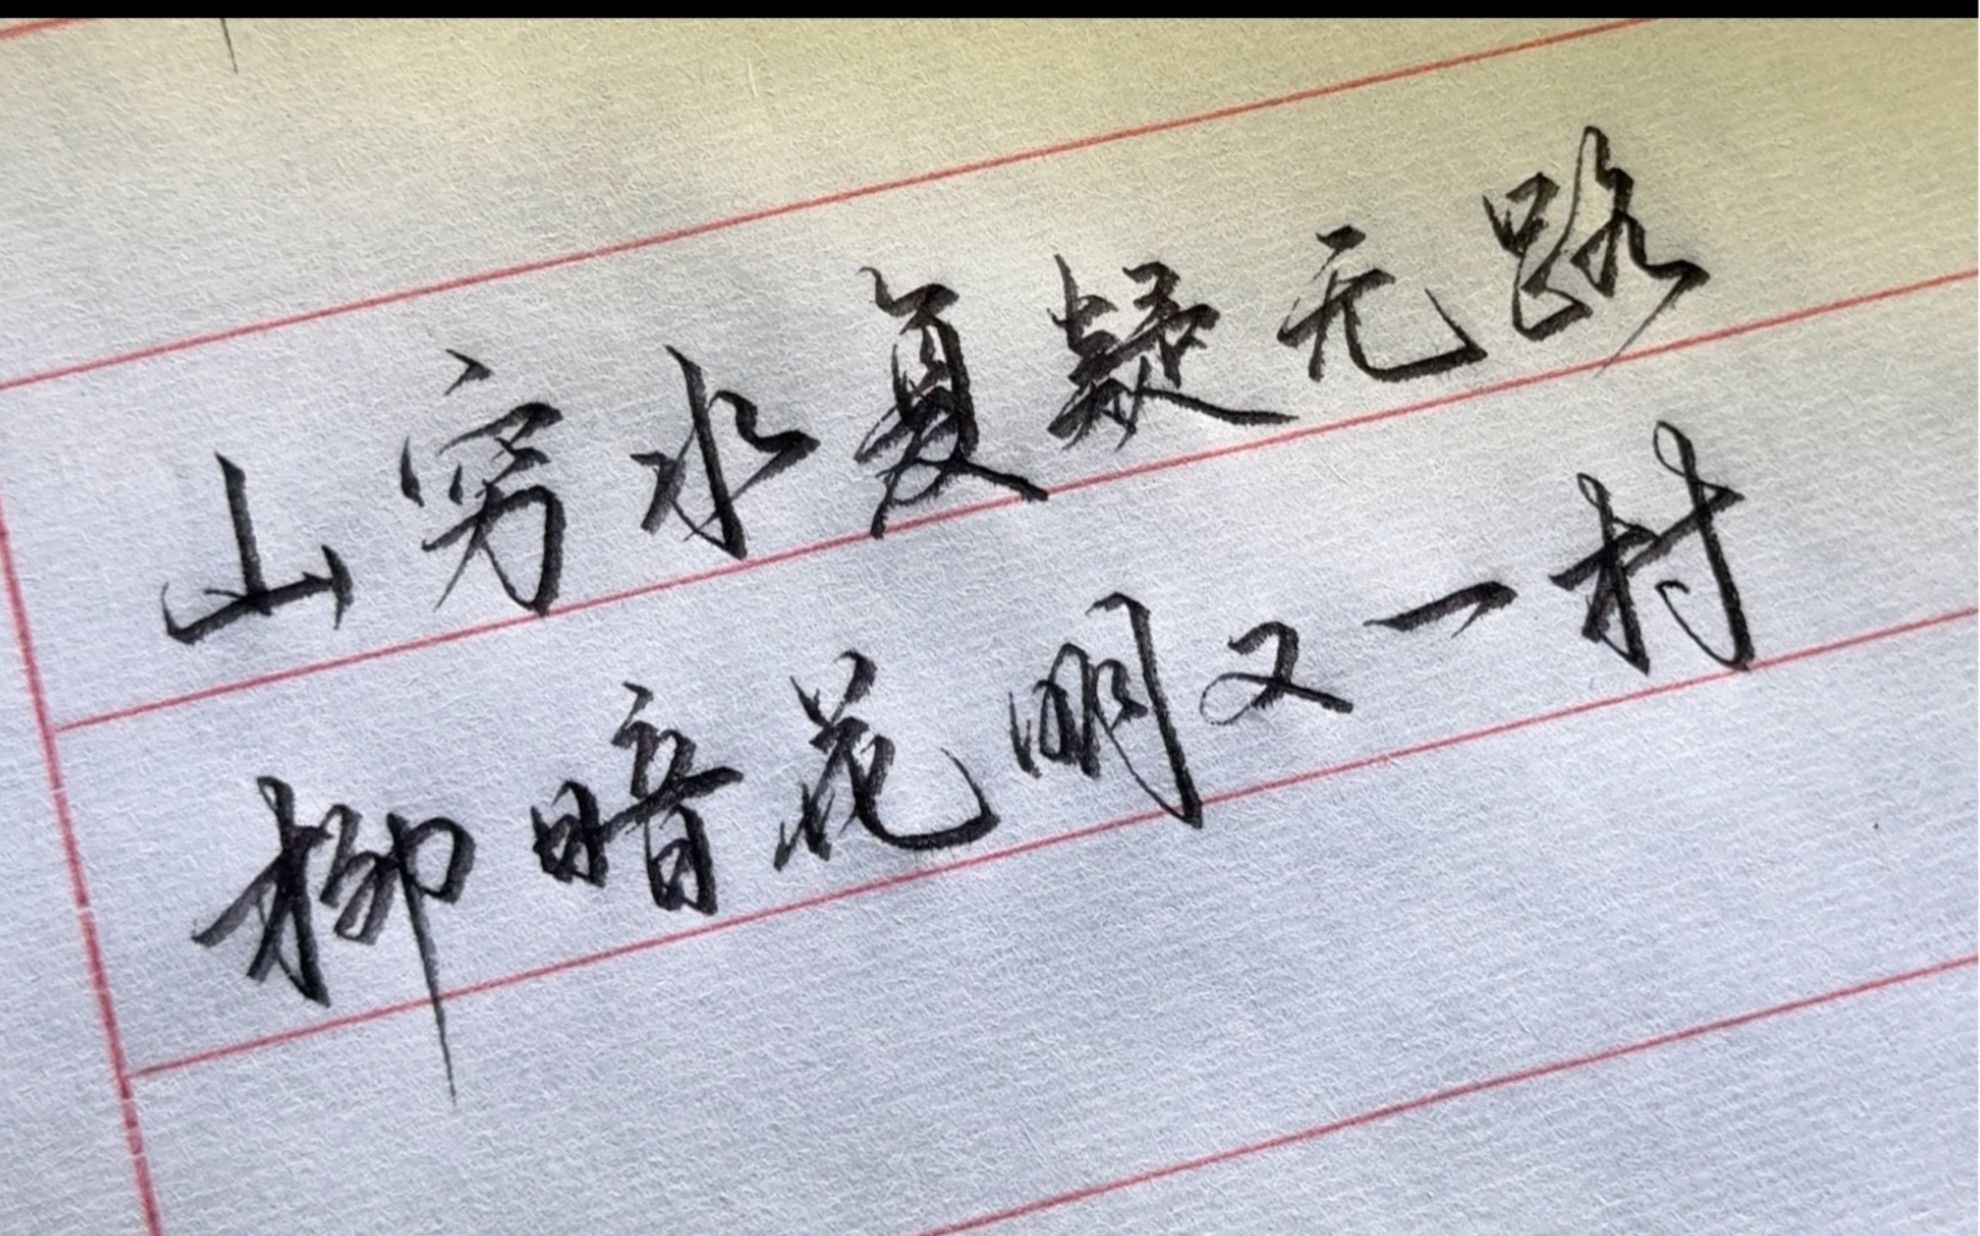 山穷水复疑无路
柳暗花明又一村